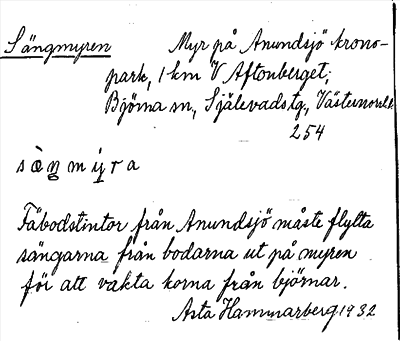 Sängmyren Myr på Anundsjö krono-
park, 1 km V Aftonberget;
Björna sn, Själevads tg., Västernorrl.
254
s ä̀ ŋ m y r a
Fäbodstintor från Anundsjö måste flytta
sängarna från bodarna ut på myren
för att vakta korna från björnar.
Asta Hammarberg 1932